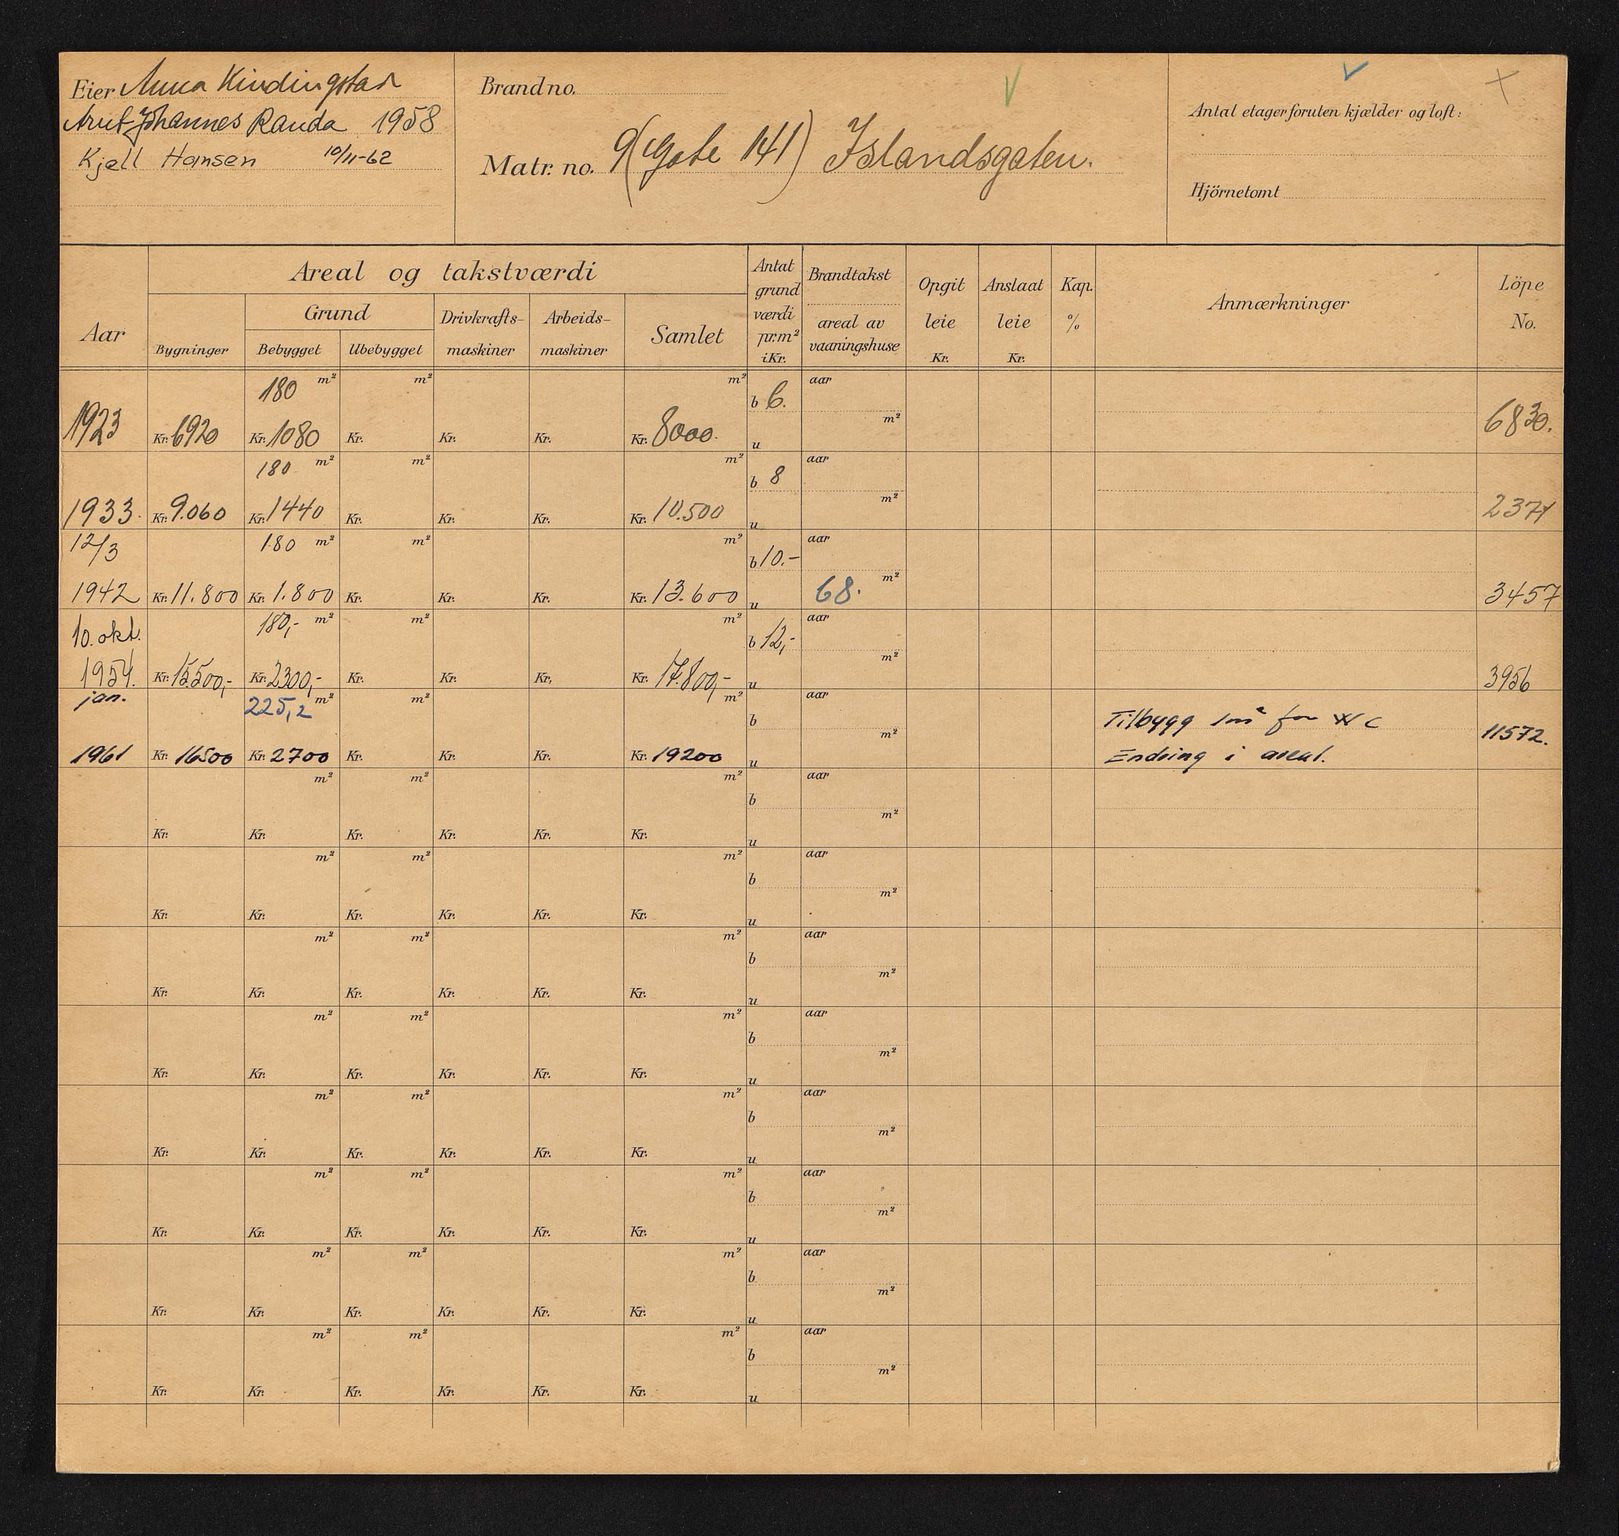 Eier Anna Kindingstad
Arnt Johannes Randa 1958
Kjell Hansen 10/11-62
Brand no.
Matr. no. 9 (Gate 141) Islandsgaten.
Antal etager foruten kjælder og loft:
Hjörnetomt
Aar
Areal og takstværdi
Bygninger
Grund
Bebygget Ubebygget
Drivkrafts-
maskiner
Arbeids-
maskiner
Samlet
Antat
grund
værdi
pr. m²
i Kr.
Brandtakst
areal av
vaaningshuse
Opgit
leie
Kr.
Anslaat
leie
Kr.
Kap.
%
Anmærkninger
Löpe
No.
180 m² m² m² b 6. aar
1923 Kr. 6920 Kr. 1080 Kr. Kr. Kr. Kr. 8000. u m² 6830.
180 m² m² m² b 8 aar
1933. Kr. 9.060 Kr. 1440 Kr. Kr. Kr. Kr. 10.500 u m² 2371
12/3 180 m² m² m² b 10.- aar
1942 Kr. 11.800 Kr. 1.800 Kr. Kr. Kr. Kr. 13.600 u 68. m² 3457
10. okt. 180,- m² m² m² b 12,- aar
1954. Kr. 15.500,- Kr. 2300,- Kr. Kr. Kr. Kr. 17.800,- u m² 3956
jan. 225,2 m² m² m² b aar Tilbygg 1m² for WC
1961 Kr. 16500 Kr. 2700 Kr. Kr. Kr. Kr. 19200 u m² Endring i areal. 11572.
m² m² m² b aar
Kr. Kr. Kr. Kr. Kr. Kr. u m²
m² m² m² b aar
Kr. Kr. Kr. Kr. Kr. Kr. u m²
m² m² m² b aar
Kr. Kr. Kr. Kr. Kr. Kr. u m²
m² m² m² b aar
Kr. Kr. Kr. Kr. Kr. Kr. u m²
m² m² m² b aar
Kr. Kr. Kr. Kr. Kr. Kr. u m²
m² m² m² b aar
Kr. Kr. Kr. Kr. Kr. Kr. u m²
m² m² m² b aar
Kr. Kr. Kr. Kr. Kr. Kr. u m²
m² m² m² b aar
Kr. Kr. Kr. Kr. Kr. Kr. u m²